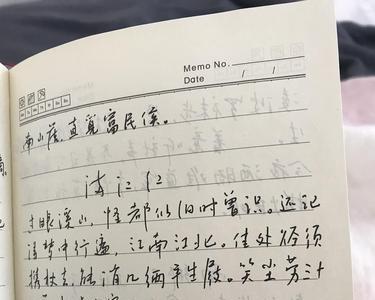 Memo No.
Date / /
南山虎,直覓富民侯。
满江红
过眼溪山,怪都似旧时曾识。还记
得梦中行遍,江南江北。佳处径须
携杖去,能消几緉平生屐。笑尘劳三十